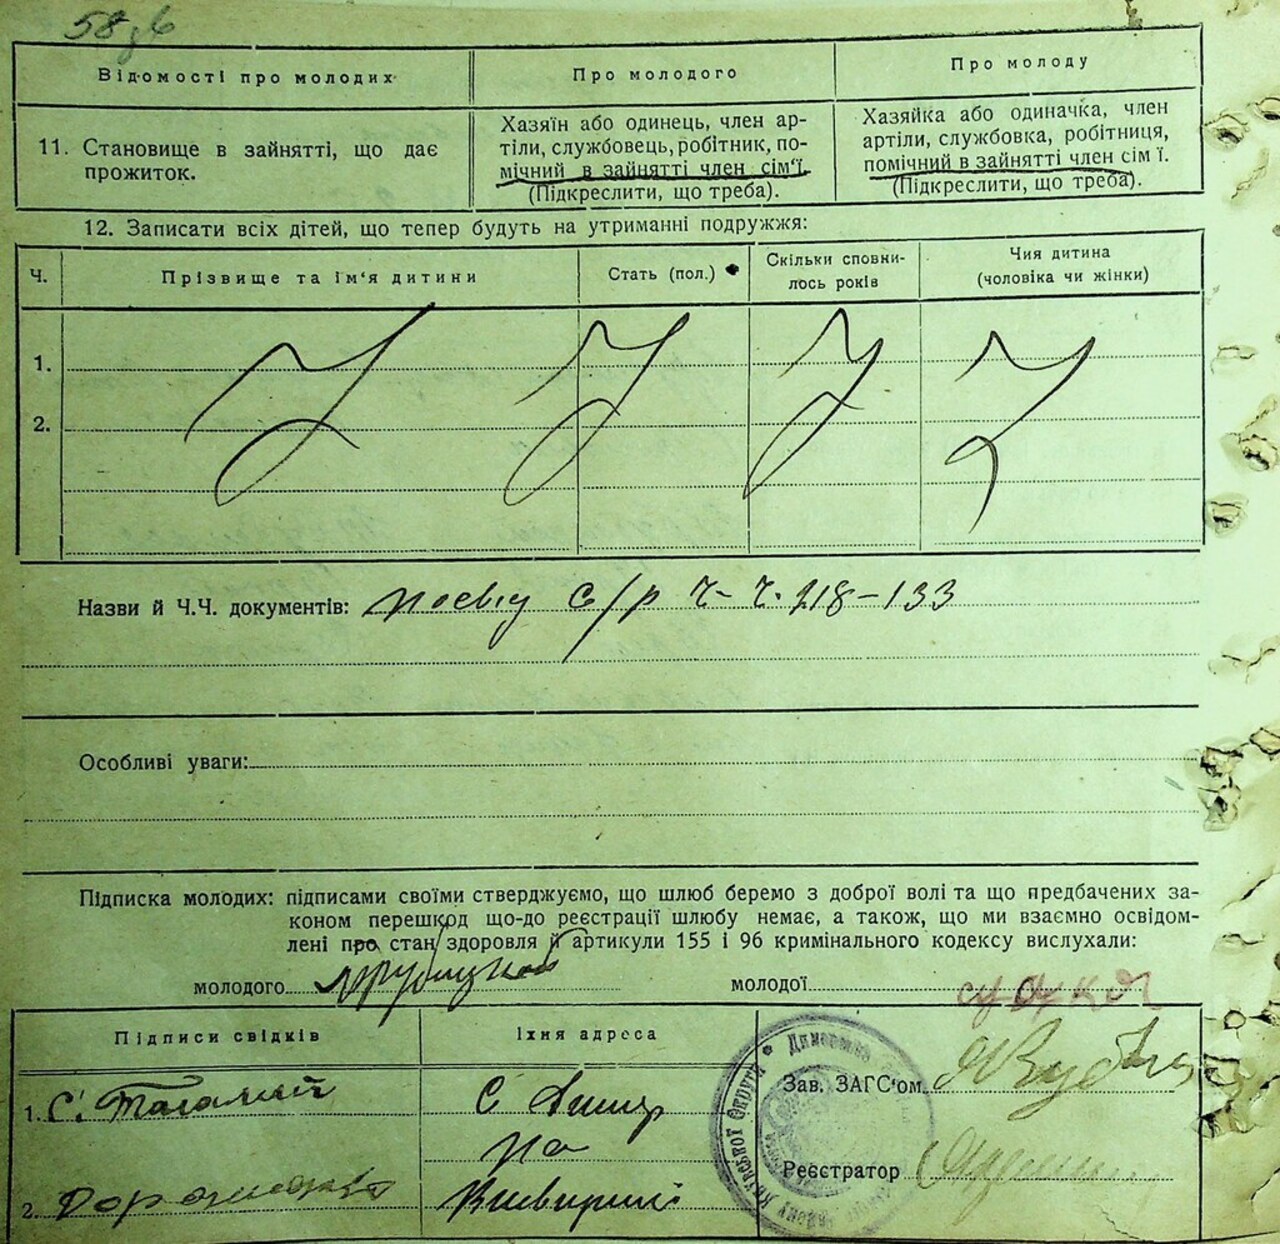 Відомості про молодих
Про молодого
Про молоду
11. Становище в зайнятті, що дає
прожиток.
Хазяїн або одинець, член ар-
тіли, службовець, робітник, по-
мічний в зайнятті член сім'ї.
(Підкреслити, що треба).
Хазяйка або одиначка, член
артіли, службовка, робітниця,
помічний в зайнятті член сім ї.
(Підкреслити, що треба).
12. Записати всіх дітей, що тепер будуть на утриманні подружжя:
Ч.
Прізвище та ім'я дитини
Стать (пол.)
Скільки сповни-
лось років
Чия дитина
(чоловіка чи жінки)
1.
2.
Назви й Ч.Ч. документів: посвід С/р Ч-Ч. 218-133
Особливі уваги:
Підписка молодих: підписами своїми стверджуємо, що шлюб беремо з доброї волі та що предбачених за-
коном перешкод що-до реєстрації шлюбу немає, а також, що ми взаємно освідом-
лені про стан здоровля й артикули 155 і 96 кримінального кодексу вислухали:
молодого
молодої
Підписи свідків
Їхня адреса
Зав. ЗАГС'ом
1.
С
Реєстратор
2.
Округи